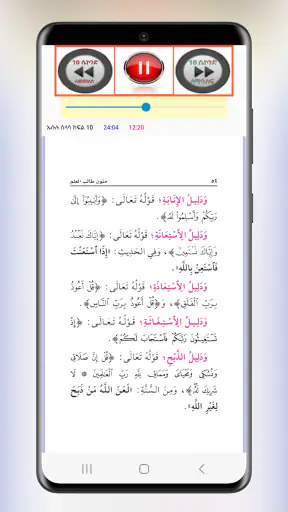 10 ሴኮንድ
10 ሴኮንድ
ለማሳለፍ
አሱሉ ሰላሳ ክፍል 10 24:04 12:20
متون طالب العلم ٥٤
وَدَلِيلُ الإِنَابَةِ؛ قَوْلُهُ تَعَالَى: ﴿وَأَنِيبُوٓاْ إِلَىٰ
رَبِّكُمْ وَأَسْلِمُواْ لَهُۥ﴾.
وَدَلِيلُ الِاسْتِعَانَةِ؛ قَوْلُهُ تَعَالَى: ﴿إِيَّاكَ نَعْبُدُ
وَإِيَّاكَ نَسْتَعِينُ﴾، وَفِي الحَدِيثِ: «إِذَا اسْتَعَنْتَ
فَاسْتَعِنْ بِاللَّهِ».
وَدَلِيلُ الِاسْتِعَاذَةِ؛ قَوْلُهُ تَعَالَى: ﴿قُلْ أَعُوذُ
بِرَبِّ ٱلْفَلَقِ﴾، وَ﴿قُلْ أَعُوذُ بِرَبِّ ٱلنَّاسِ﴾.
وَدَلِيلُ الِاسْتِغَاثَةِ؛ قَوْلُهُ تَعَالَى: ﴿إِذْ
تَسْتَغِيثُونَ رَبَّكُمْ فَٱسْتَجَابَ لَكُمْ﴾.
وَدَلِيلُ الذَّبْحِ؛ قَوْلُهُ تَعَالَى: ﴿قُلْ إِنَّ صَلَاتِي
وَنُسُكِي وَمَحْيَايَ وَمَمَاتِي لِلَّهِ رَبِّ ٱلْعَٰلَمِينَ ۝ لَا
شَرِيكَ لَهُۥ﴾، وَمِنَ السُّنَّةِ: «لَعَنَ اللَّهُ مَنْ ذَبَحَ
لِغَيْرِ اللَّهِ».